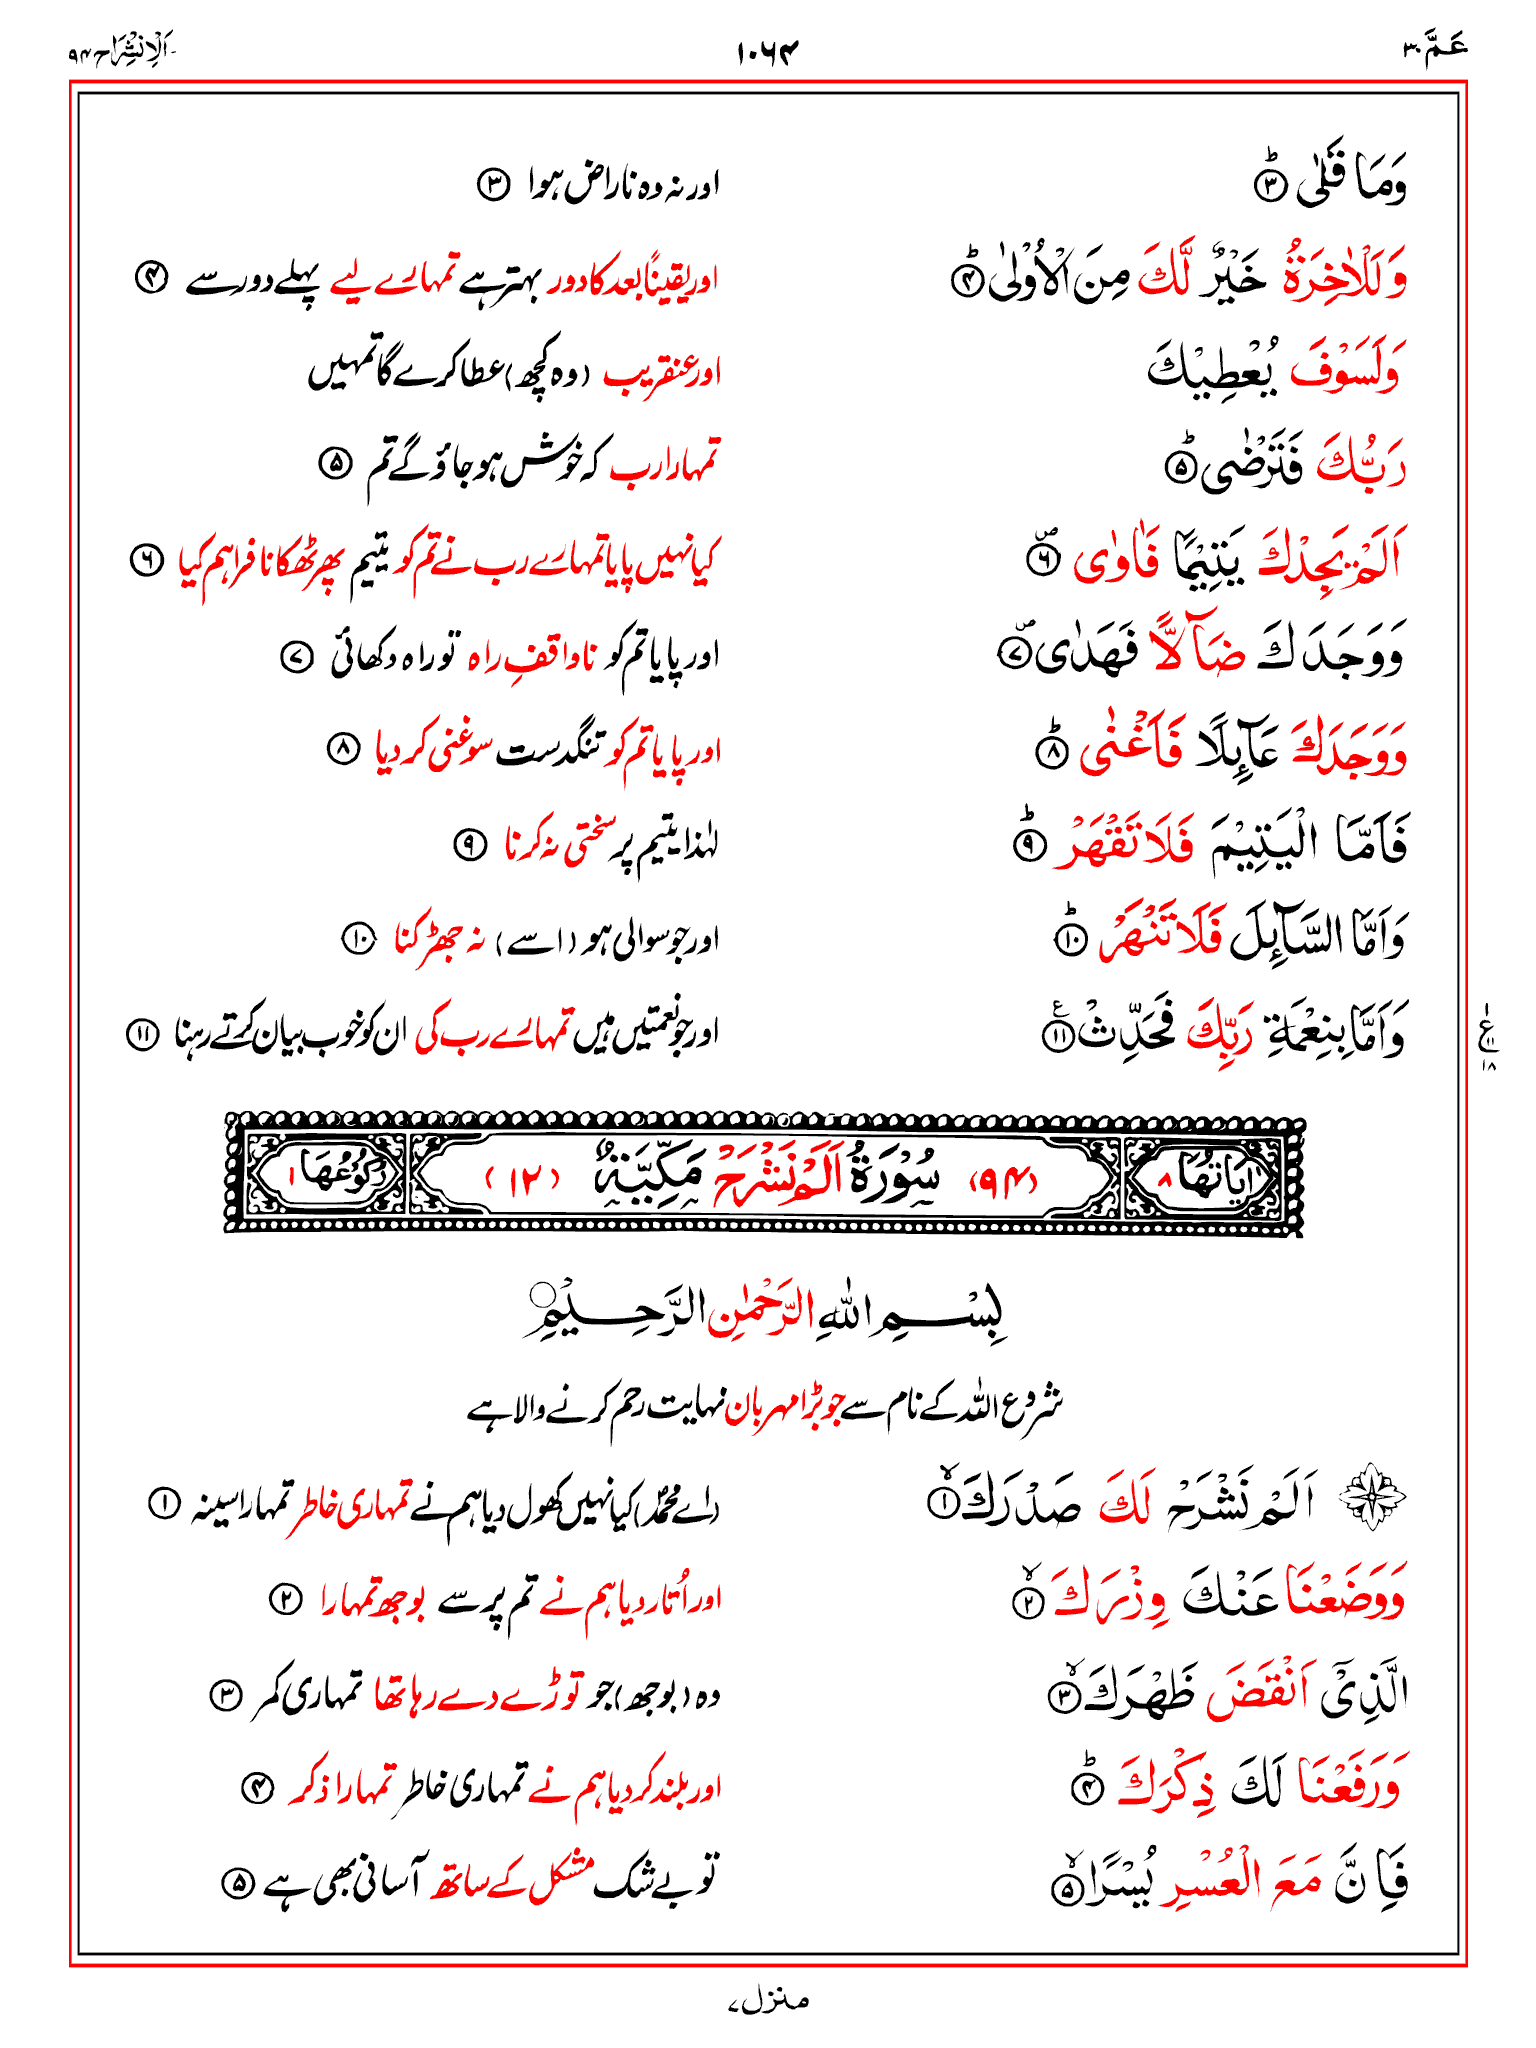 عَمَّ ٣٠ ١٠٦٤ اَلْاِنْشِرَاح ٩٤
وَمَا قَلٰى ؕ‏﴿۳﴾ اور نہ وہ ناراض ہوا ﴿۳﴾
وَلَلْاٰخِرَةُ خَيْرٌ لَّكَ مِنَ الْاُوْلٰى ؕ‏﴿۴﴾ اور یقیناً بعد کا دور بہتر ہے تمہارے لیے پہلے دور سے ﴿۴﴾
وَلَسَوْفَ يُعْطِيْكَ اور عنقریب (وہ کچھ) عطا کرے گا تمہیں
رَبُّكَ فَتَرْضٰى ؕ‏﴿۵﴾ تمہارا رب کہ خوش ہو جاؤ گے تم ﴿۵﴾
اَلَمْ يَجِدْكَ يَتِيْمًا فَاٰوٰى ۪‏﴿۶﴾ کیا نہیں پایا تمہارے رب نے تم کو یتیم پھر ٹھکانا فراہم کیا ﴿۶﴾
وَوَجَدَكَ ضَآلًّا فَهَدٰى ۪‏﴿۷﴾ اور پایا تم کو ناواقفِ راہ تو راہ دکھائی ﴿۷﴾
وَوَجَدَكَ عَآئِلًا فَاَغْنٰى ؕ‏﴿۸﴾ اور پایا تم کو تنگدست سو غنی کر دیا ﴿۸﴾
فَاَمَّا الْيَتِيْمَ فَلَا تَقْهَرْ ؕ‏﴿۹﴾ لہٰذا یتیم پر سختی نہ کرنا ﴿۹﴾
وَاَمَّا السَّآئِلَ فَلَا تَنْهَرْ ؕ‏﴿۱۰﴾ اور جو سوالی ہو (اسے) نہ جھڑکنا ﴿۱۰﴾
وَاَمَّا بِنِعْمَةِ رَبِّكَ فَحَدِّثْ ‏﴿۱۱﴾ع اور جو نعمتیں ہیں تمہارے رب کی ان کو خوب بیان کرتے رہنا ﴿۱۱﴾
ع ۱۱ ۱۸
اٰيَاتُهَا ٨ (٩٤) سُوْرَةُ اَلَمْ نَشْرَحْ مَكِّيَّةٌ (١٢) رُكُوْعُهَا ١
بِسْمِ اللّٰهِ الرَّحْمٰنِ الرَّحِيْمِ
شروع اللہ کے نام سے جو بڑا مہربان نہایت رحم کرنے والا ہے
اَلَمْ نَشْرَحْ لَكَ صَدْرَكَ ۙ‏﴿۱﴾ (اے محمدؐ) کیا نہیں کھول دیا ہم نے تمہاری خاطر تمہارا سینہ ﴿۱﴾
وَوَضَعْنَا عَنْكَ وِزْرَكَ ۙ‏﴿۲﴾ اور اُتار دیا ہم نے تم پر سے بوجھ تمہارا ﴿۲﴾
الَّذِيْٓ اَنْقَضَ ظَهْرَكَ ۙ‏﴿۳﴾ وہ (بوجھ) جو توڑے دے رہا تھا تمہاری کمر ﴿۳﴾
وَرَفَعْنَا لَكَ ذِكْرَكَ ؕ‏﴿۴﴾ اور بلند کر دیا ہم نے تمہاری خاطر تمہارا ذکر ﴿۴﴾
فَاِنَّ مَعَ الْعُسْرِ يُسْرًا ۙ‏﴿۵﴾ تو بے شک مشکل کے ساتھ آسانی بھی ہے ﴿۵﴾
منزل ٧